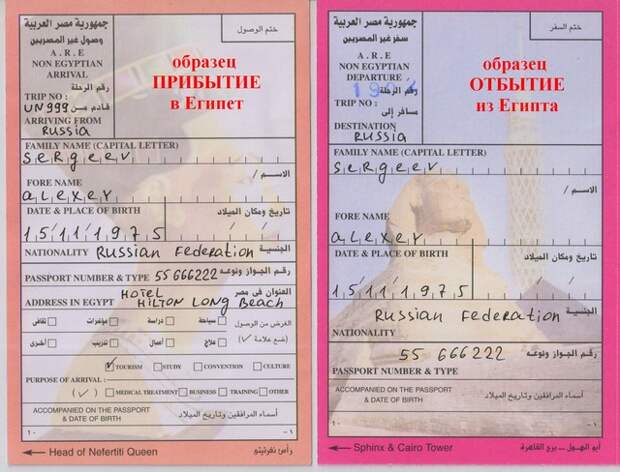 جمهورية مصر العربية
وصول غير المصريين
A . R . E
NON EGYPTIAN
ARRIVAL
رقم الرحلة
TRIP NO :
UN999 قادم من
ARRIVING FROM
RUSSIA
ختم الوصول
образец
ПРИБЫТИЕ
в Египет
FAMILY NAME (CAPITAL LETTER)
SERGEEV
الاسم /
FORE NAME
ALEXEY
/
DATE & PLACE OF BIRTH تاريخ ومكان الميلاد
15/11/1975
NATIONALITY RUSSIAN FEDERATION الجنسية
PASSPORT NUMBER & TYPE 55 666222 رقم الجواز ونوعه
العنوان فى مصر
ADDRESS IN EGYPT HOTEL HILTON LONG BEACH
الغرض من الوصول سياحة دراسة مؤتمرات ثقافى
(ضع علامة √) علاج أعمال تدريب أخرى
TOURISM STUDY CONVENTION CULTURE
PURPOSE OF ARRIVAL :
(√) MEDICAL TREATMENT BUSINESS TRAINING OTHER
ACCOMPANIED ON THE PASSPORT
& DATE OF BIRTH
أسماء المرافقين وتاريخ الميلاد
١٠ ١٠
Head of Nefertiti Queen رأس نفرتيتى
جمهورية مصر العربية
سفر غير المصريين
A . R . E
NON EGYPTIAN
DEPARTURE
رقم الرحلة
TRIP NO :
مسافر إلى
DESTINATION
RUSSIA
ختم السفر
образец
ОТБЫТИЕ
из Египта
FAMILY NAME (CAPITAL LETTER)
SERGEEV
الاسم /
FORE NAME
/
ALEXEY
DATE & PLACE OF BIRTH تاريخ ومكان الميلاد
15/11/1975
RUSSIAN FEDERATION الجنسية
NATIONALITY
55 666222 رقم الجواز ونوعه
PASSPORT NUMBER & TYPE
ACCOMPANIED ON THE PASSPORT
& DATE OF BIRTH
أسماء المرافقين وتاريخ الميلاد
Sphinx & Cairo Tower أبو الهول - برج القاهرة